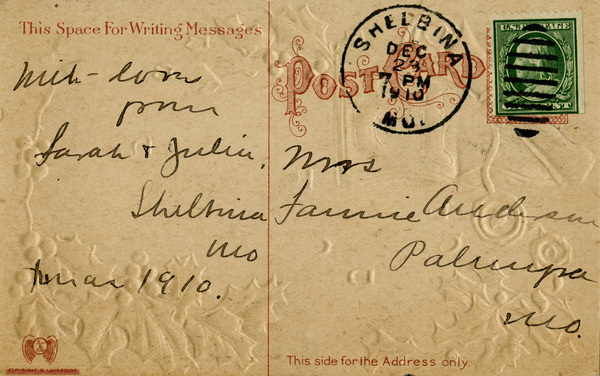 This Space For Writing Messages
With love
from
Sarah & Julia,
Shelbina
Mo
Xmas 1910.
POST CARD
SHELBINA
DEC
7 PM
1910
MO.
U.S. POSTAGE
CENT
Miss
Fannie Anderson
Palmyra
Mo.
This side for the Address only.
COPYRIGHT S. LANGSDORF